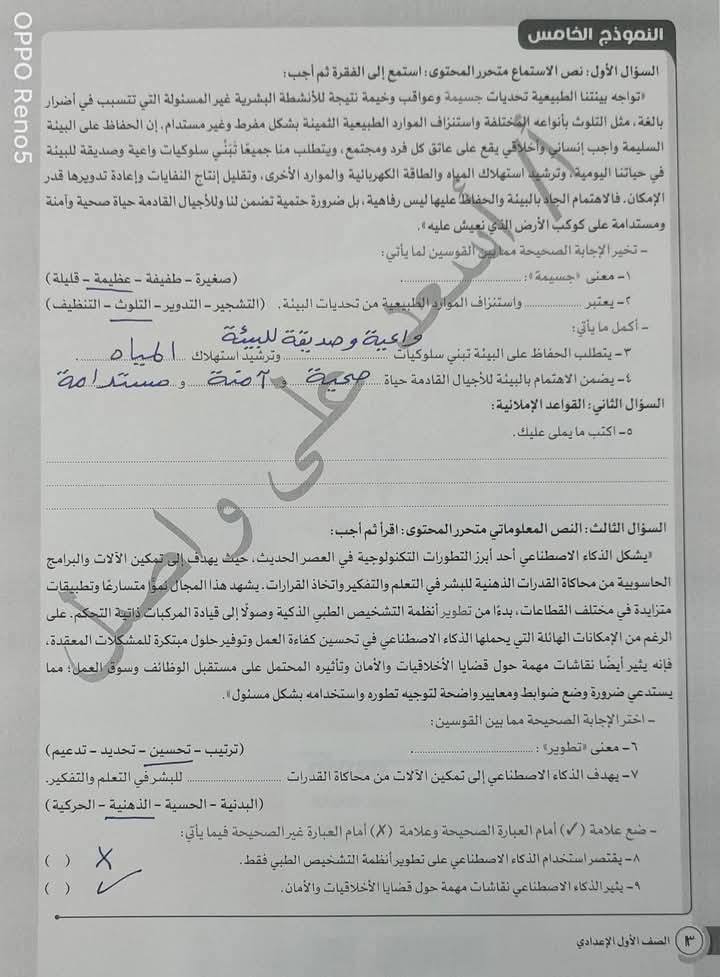 النموذج الخامس
السؤال الأول: نص الاستماع متحرر المحتوى: استمع إلى الفقرة ثم أجب:
«تواجه بيئتنا الطبيعية تحديات جسيمة وعواقب وخيمة نتيجة للأنشطة البشرية غير المسئولة التي تتسبب في أضرار
بالغة، مثل التلوث بأنواعه المختلفة واستنزاف الموارد الطبيعية الثمينة بشكل مفرط وغير مستدام. إن الحفاظ على البيئة
السليمة واجب إنساني وأخلاقي يقع على عاتق كل فرد ومجتمع، ويتطلب منا جميعًا تَبَنِّي سلوكيات واعية وصديقة للبيئة
في حياتنا اليومية، وترشيد استهلاك المياه والطاقة الكهربائية والموارد الأخرى، وتقليل إنتاج النفايات وإعادة تدويرها قدر
الإمكان. فالاهتمام الجاد بالبيئة والحفاظ عليها ليس رفاهية، بل ضرورة حتمية تضمن لنا وللأجيال القادمة حياة صحية وآمنة
ومستدامة على كوكب الأرض الذي نعيش عليه».
- تخير الإجابة الصحيحة مما بين القوسين لما يأتي:
١- معنى «جسيمة»: .................... (صغيرة - طفيفة - عظيمة - قليلة)
٢- يعتبر .................... واستنزاف الموارد الطبيعية من تحديات البيئة. (التشجير - التدوير - التلوث - التنظيف)
- أكمل ما يأتي:
٣- يتطلب الحفاظ على البيئة تبني سلوكيات واعية وصديقة للبيئة وترشيد استهلاك المياه.
٤- يضمن الاهتمام بالبيئة للأجيال القادمة حياة صحية و آمنة و مستدامة
السؤال الثاني: القواعد الإملائية:
٥- اكتب ما يملى عليك.
السؤال الثالث: النص المعلوماتي متحرر المحتوى: اقرأ ثم أجب:
«يشكل الذكاء الاصطناعي أحد أبرز التطورات التكنولوجية في العصر الحديث، حيث يهدف إلى تمكين الآلات والبرامج
الحاسوبية من محاكاة القدرات الذهنية للبشر في التعلم والتفكير واتخاذ القرارات. يشهد هذا المجال نموًّا متسارعًا وتطبيقات
متزايدة في مختلف القطاعات، بدءًا من تطوير أنظمة التشخيص الطبي الذكية وصولًا إلى قيادة المركبات ذاتية التحكم. على
الرغم من الإمكانات الهائلة التي يحملها الذكاء الاصطناعي في تحسين كفاءة العمل وتوفير حلول مبتكرة للمشكلات المعقدة،
فإنه يثير أيضًا نقاشات مهمة حول قضايا الأخلاقيات والأمان وتأثيره المحتمل على مستقبل الوظائف وسوق العمل؛ مما
يستدعي ضرورة وضع ضوابط ومعايير واضحة لتوجيه تطوره واستخدامه بشكل مسئول».
- اختر الإجابة الصحيحة مما بين القوسين:
٦- معنى «تطوير»: .................... (ترتيب - تحسين - تحديد - تدعيم)
٧- يهدف الذكاء الاصطناعي إلى تمكين الآلات من محاكاة القدرات .................... للبشر في التعلم والتفكير.
(البدنية - الحسية - الذهنية - الحركية)
- ضع علامة (✓) أمام العبارة الصحيحة وعلامة (✗) أمام العبارة غير الصحيحة فيما يأتي:
٨- يقتصر استخدام الذكاء الاصطناعي على تطوير أنظمة التشخيص الطبي فقط. ✗ ( )
٩- يثير الذكاء الاصطناعي نقاشات مهمة حول قضايا الأخلاقيات والأمان. ✓ ( )
١٣ الصف الأول الإعدادي
OPPO Reno5
أ/ أسعد علي واصل